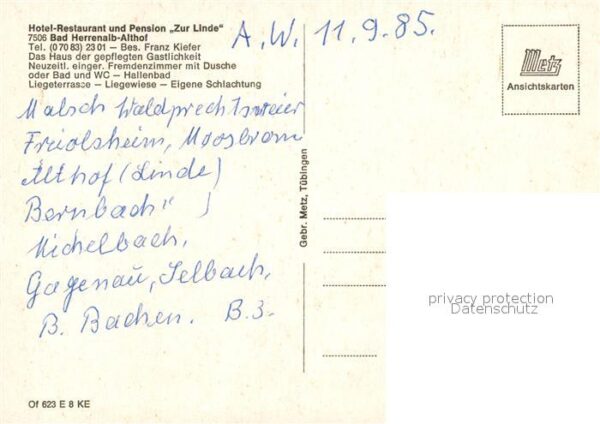 Hotel-Restaurant und Pension „Zur Linde"
7506 Bad Herrenalb-Althof
Tel. (070 83) 23 01 — Bes. Franz Kiefer
Das Haus der gepflegten Gastlichkeit
Neuzeitl. einger. Fremdenzimmer mit Dusche
oder Bad und WC — Hallenbad
Liegeterrasse — Liegewiese — Eigene Schlachtung
A.W. 11.9.85.
Metz
Ansichtskarten
Malsch Waldprechtsweier
Freiolsheim, Moosbronn
Althof (Linde)
Bernbach " )
Michelbach,
Gagenau, Selbach,
B. Baden. B.3.
Gebr. Metz, Tübingen
privacy protection
Datenschutz
Of 623 E 8 KE